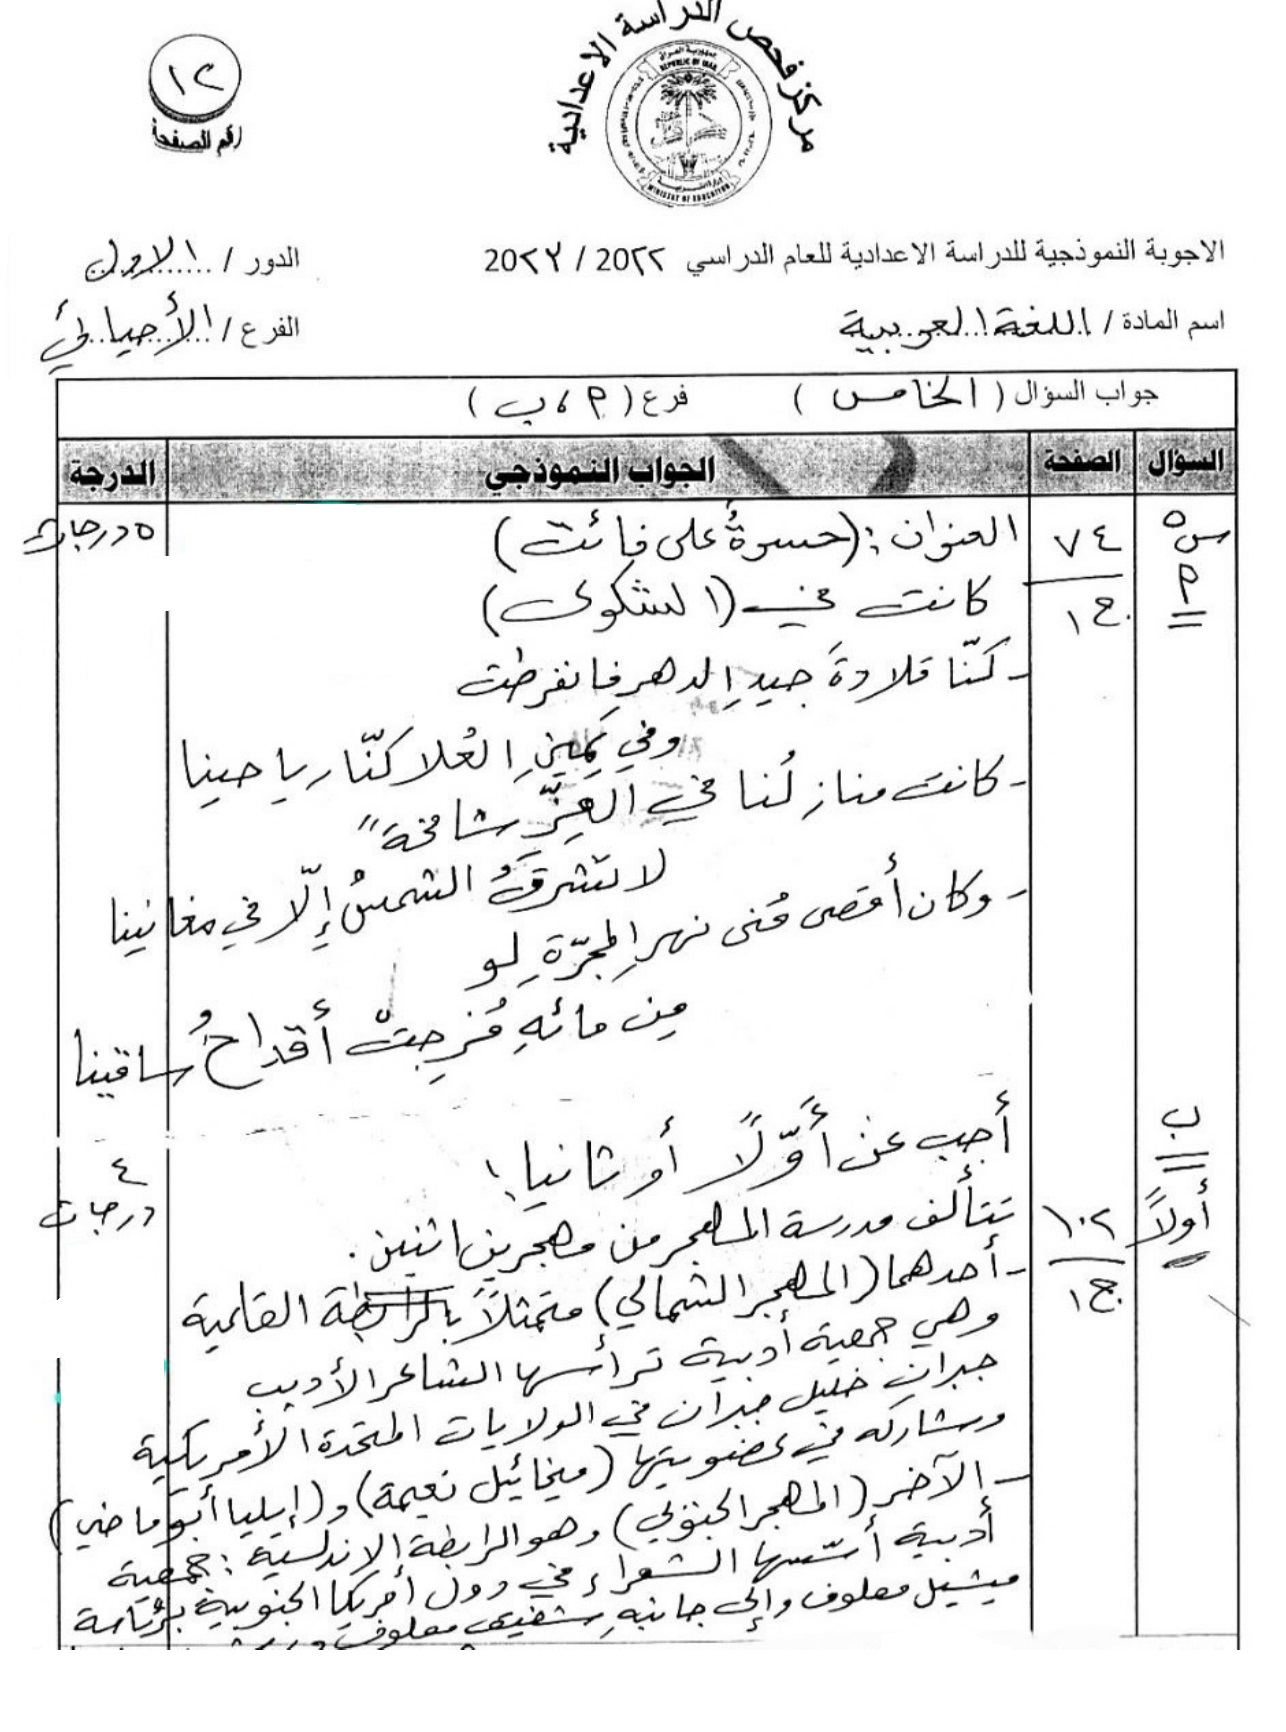 مركز فحص الدراسة الاعدادية
جمهورية العراق
REPUBLIC OF IRAQ
وزارة التربية
MINISTRY OF EDUCATION
١٢
رقم الصفحة
الاجوبة النموذجية للدراسة الاعدادية للعام الدراسي ٢٠٢٢ / ٢٠٢٣
الدور / الاول
اسم المادة / اللغة العربية
الفرع / الأحيائي
جواب السؤال ( الخامس ) فرع ( P ، ب )
السؤال الصفحة الجواب النموذجي الدرجة
س٥ ٧٤ العنوان : (حسرةٌ على فائت) ٥ درجات
P ج١ كانت في (الشكوى)
- كنّا قلادةَ جيدِ الدهر فانفرطت
وفي يمينِ العُلا كنّا رياحينا
- كانت منازلُنا في العِزِّ شامخة"
لا تشرقُ الشمسُ إلّا في مغانينا
- وكان أقصى مُنى نهرِ المجرّةِ لو
مِن مائهِ مُزِجتْ أقداحُ ساقينا
ب أجب عن أَوّلًا أو ثانيا:
٤ درجات
أولاً ١٠٢ تتألف مدرسة المهجر من مهجرين اثنين.
ج١ - أحدهما (المهجر الشمالي) متمثلاً بالرابطة القلمية
وهي جمعية أدبية ترأسها الشاعر الأديب
جبران خليل جبران في الولايات المتحدة الأمريكية
وشاركه في عضويتها (ميخائيل نعيمة) و(إيليا أبو ماضي)
- الآخر (المهجر الجنوبي) وهو الرابطة الاندلسية : جمعية
أدبية أسّسها الشعراء في دول أمريكا الجنوبية برئاسة
ميشيل معلوف وإلى جانبهِ شفيق معلوف